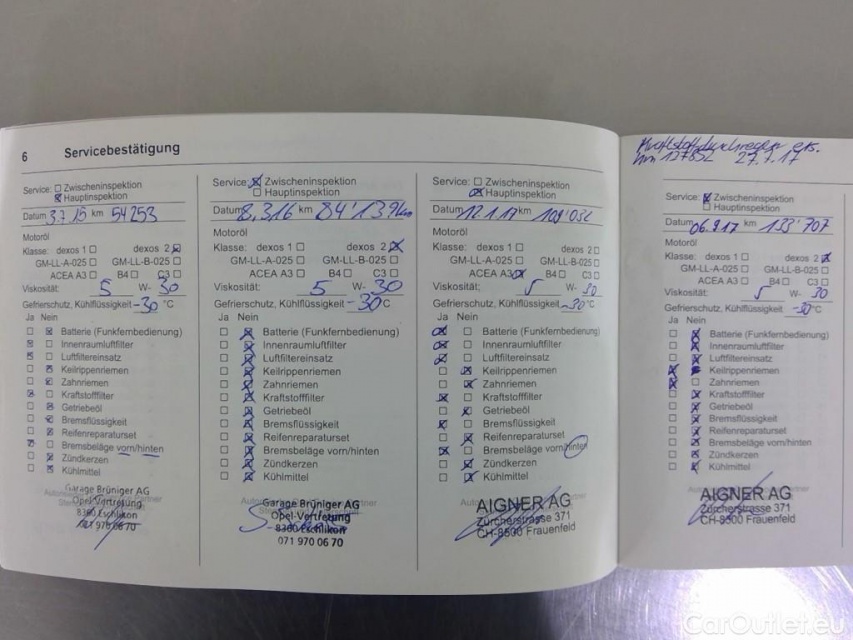 6 Servicebestätigung
Service: Zwischeninspektion
Hauptinspektion
Datum 3.7.15 km 54253
Motoröl
Klasse: dexos 1 dexos 2
GM-LL-A-025 GM-LL-B-025
ACEA A3 B4 C3
Viskosität: 5 W- 30
Gefrierschutz, Kühlflüssigkeit -30 °C
Ja Nein
Batterie (Funkfernbedienung)
Innenraumluftfilter
Luftfiltereinsatz
Keilrippenriemen
Zahnriemen
Kraftstofffilter
Getriebeöl
Bremsflüssigkeit
Reifenreparaturset
Bremsbeläge vorn/hinten
Zündkerzen
Kühlmittel
Garage Brüniger AG
Opel-Vertretung
8360 Eschlikon
071 970 06 70
Service: Zwischeninspektion
Hauptinspektion
Datum 8.3.16 km 84'139km
Motoröl
Klasse: dexos 1 dexos 2
GM-LL-A-025 GM-LL-B-025
ACEA A3 B4 C3
Viskosität: 5 W- 30
Gefrierschutz, Kühlflüssigkeit -30°C
Ja Nein
Batterie (Funkfernbedienung)
Innenraumluftfilter
Luftfiltereinsatz
Keilrippenriemen
Zahnriemen
Kraftstofffilter
Getriebeöl
Bremsflüssigkeit
Reifenreparaturset
Bremsbeläge vorn/hinten
Zündkerzen
Kühlmittel
Garage Brüniger AG
Opel-Vertretung
8360 Eschlikon
071 970 06 70
Service: Zwischeninspektion
Hauptinspektion
Datum 12.1.17 km
Motoröl
Klasse: dexos 1 dexos 2
GM-LL-A-025 GM-LL-B-025
ACEA A3 B4 C3
Viskosität: 5 W- 30
Gefrierschutz, Kühlflüssigkeit -30°C
Ja Nein
Batterie (Funkfernbedienung)
Innenraumluftfilter
Luftfiltereinsatz
Keilrippenriemen
Zahnriemen
Kraftstofffilter
Getriebeöl
Bremsflüssigkeit
Reifenreparaturset
Bremsbeläge vorn/hinten
Zündkerzen
Kühlmittel
AIGNER AG
Zürcherstrasse 371
CH-8500 Frauenfeld
27.7.17
Service: Zwischeninspektion
Hauptinspektion
Datum 06.9.17 km 133'707
Motoröl
Klasse: dexos 1 dexos 2
GM-LL-A-025 GM-LL-B-025
ACEA A3 B4 C3
Viskosität: 5 W- 30
Gefrierschutz, Kühlflüssigkeit -30°C
Ja Nein
Batterie (Funkfernbedienung)
Innenraumluftfilter
Luftfiltereinsatz
Keilrippenriemen
Zahnriemen
Kraftstofffilter
Getriebeöl
Bremsflüssigkeit
Reifenreparaturset
Bremsbeläge vorn/hinten
Zündkerzen
Kühlmittel
AIGNER AG
Zürcherstrasse 371
CH-8500 Frauenfeld
CarOutlet.eu